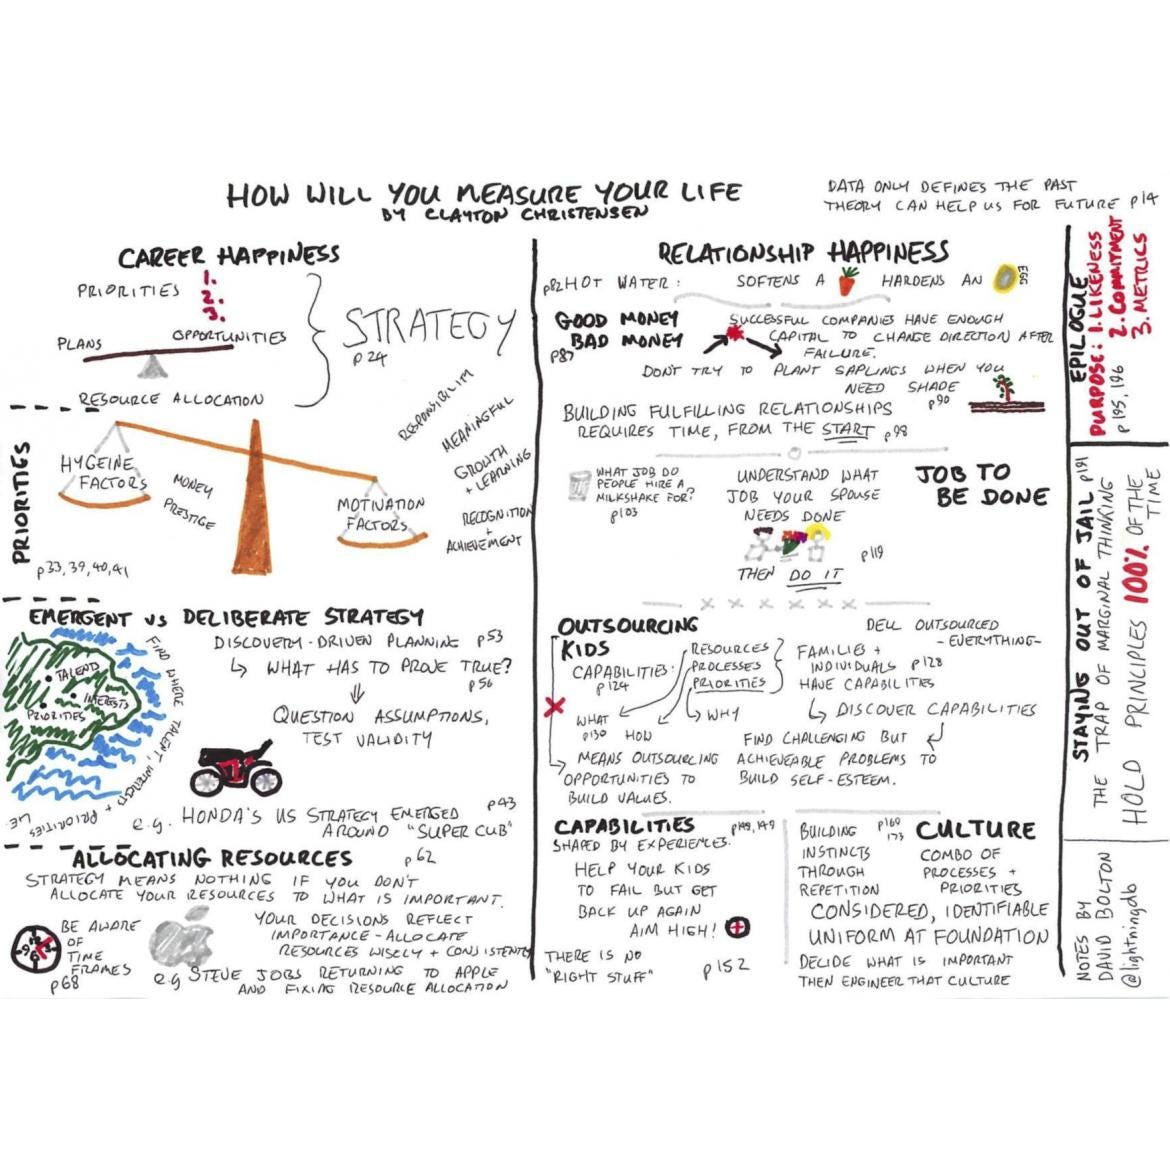 HOW WILL YOU MEASURE YOUR LIFE
BY CLAYTON CHRISTENSEN
DATA ONLY DEFINES THE PAST
THEORY CAN HELP US FOR FUTURE p14
CAREER HAPPINESS
PRIORITIES 1.
2.
3.
PLANS OPPORTUNITIES
RESOURCE ALLOCATION
STRATEGY
p24
PRIORITIES
HYGEINE
FACTORS
MONEY
PRESTIGE
MOTIVATION
FACTORS
RESPONSIBILIM
MEANINGFUL
GROWTH
+ LEARNING
RECOGNITION
+
ACHIEVEMENT
p33,39,40,41
EMERGENT vs DELIBERATE STRATEGY
DISCOVERY-DRIVEN PLANNING p53
WHAT HAS TO PROVE TRUE?
p56
QUESTION ASSUMPTIONS,
TEST VALIDITY
TALENT
INTERESTS
PRIORITIES
FIND WHERE TALENT, INTERESTS + PRIORITIES LIE.
e.g. HONDA'S US STRATEGY EMERGED p43
AROUND "SUPER CUB"
ALLOCATING RESOURCES p62
STRATEGY MEANS NOTHING IF YOU DON'T
ALLOCATE YOUR RESOURCES TO WHAT IS IMPORTANT.
BE AWARE
OF
TIME
FRAMES
p68
YOUR DECISIONS REFLECT
IMPORTANCE-ALLOCATE
RESOURCES WISELY + CONSISTENTLY
e.g STEVE JOBS RETURNING TO APPLE
AND FIXING RESOURCE ALLOCATION
RELATIONSHIP HAPPINESS
p82 HOT WATER: SOFTENS A HARDENS AN EGG
GOOD MONEY
BAD MONEY
p87
SUCCESSFUL COMPANIES HAVE ENOUGH
CAPITAL TO CHANGE DIRECTION AFTER
FAILURE.
DON'T TRY TO PLANT SAPLINGS WHEN YOU
NEED SHADE
p90
BUILDING FULFILLING RELATIONSHIPS
REQUIRES TIME, FROM THE START p98
WHAT JOB DO
PEOPLE HIRE A
MILKSHAKE FOR?
p103
UNDERSTAND WHAT
JOB YOUR SPOUSE
NEEDS DONE
p119
THEN DO IT
JOB TO
BE DONE
OUTSOURCING
KIDS
CAPABILITIES:
p124
RESOURCES
PROCESSES
PRIORITIES
WHAT
p130 HOW
WHY
MEANS OUTSOURCING
OPPORTUNITIES TO
BUILD VALUES.
DELL OUTSOURCED
-EVERYTHING-
FAMILIES +
INDIVIDUALS p128
HAVE CAPABILITIES
DISCOVER CAPABILITIES
FIND CHALLENGING BUT
ACHIEVEABLE PROBLEMS TO
BUILD SELF-ESTEEM.
CAPABILITIES p148,149
SHAPED BY EXPERIENCES.
HELP YOUR KIDS
TO FAIL BUT GET
BACK UP AGAIN
AIM HIGH!
THERE IS NO
"RIGHT STUFF"
p152
BUILDING
INSTINCTS
THROUGH
REPETITION
p160
173
CULTURE
COMBO OF
PROCESSES +
PRIORITIES
CONSIDERED, IDENTIFIABLE
UNIFORM AT FOUNDATION
DECIDE WHAT IS IMPORTANT
THEN ENGINEER THAT CULTURE
EPILOGUE
PURPOSE: 1. LIKENESS
2. COMMITMENT
3. METRICS
p195,196
STAYING OUT OF JAIL p191
THE TRAP OF MARGINAL THINKING
HOLD PRINCIPLES 100% OF THE
TIME
NOTES BY
DAVID BOLTON
@lightningdb